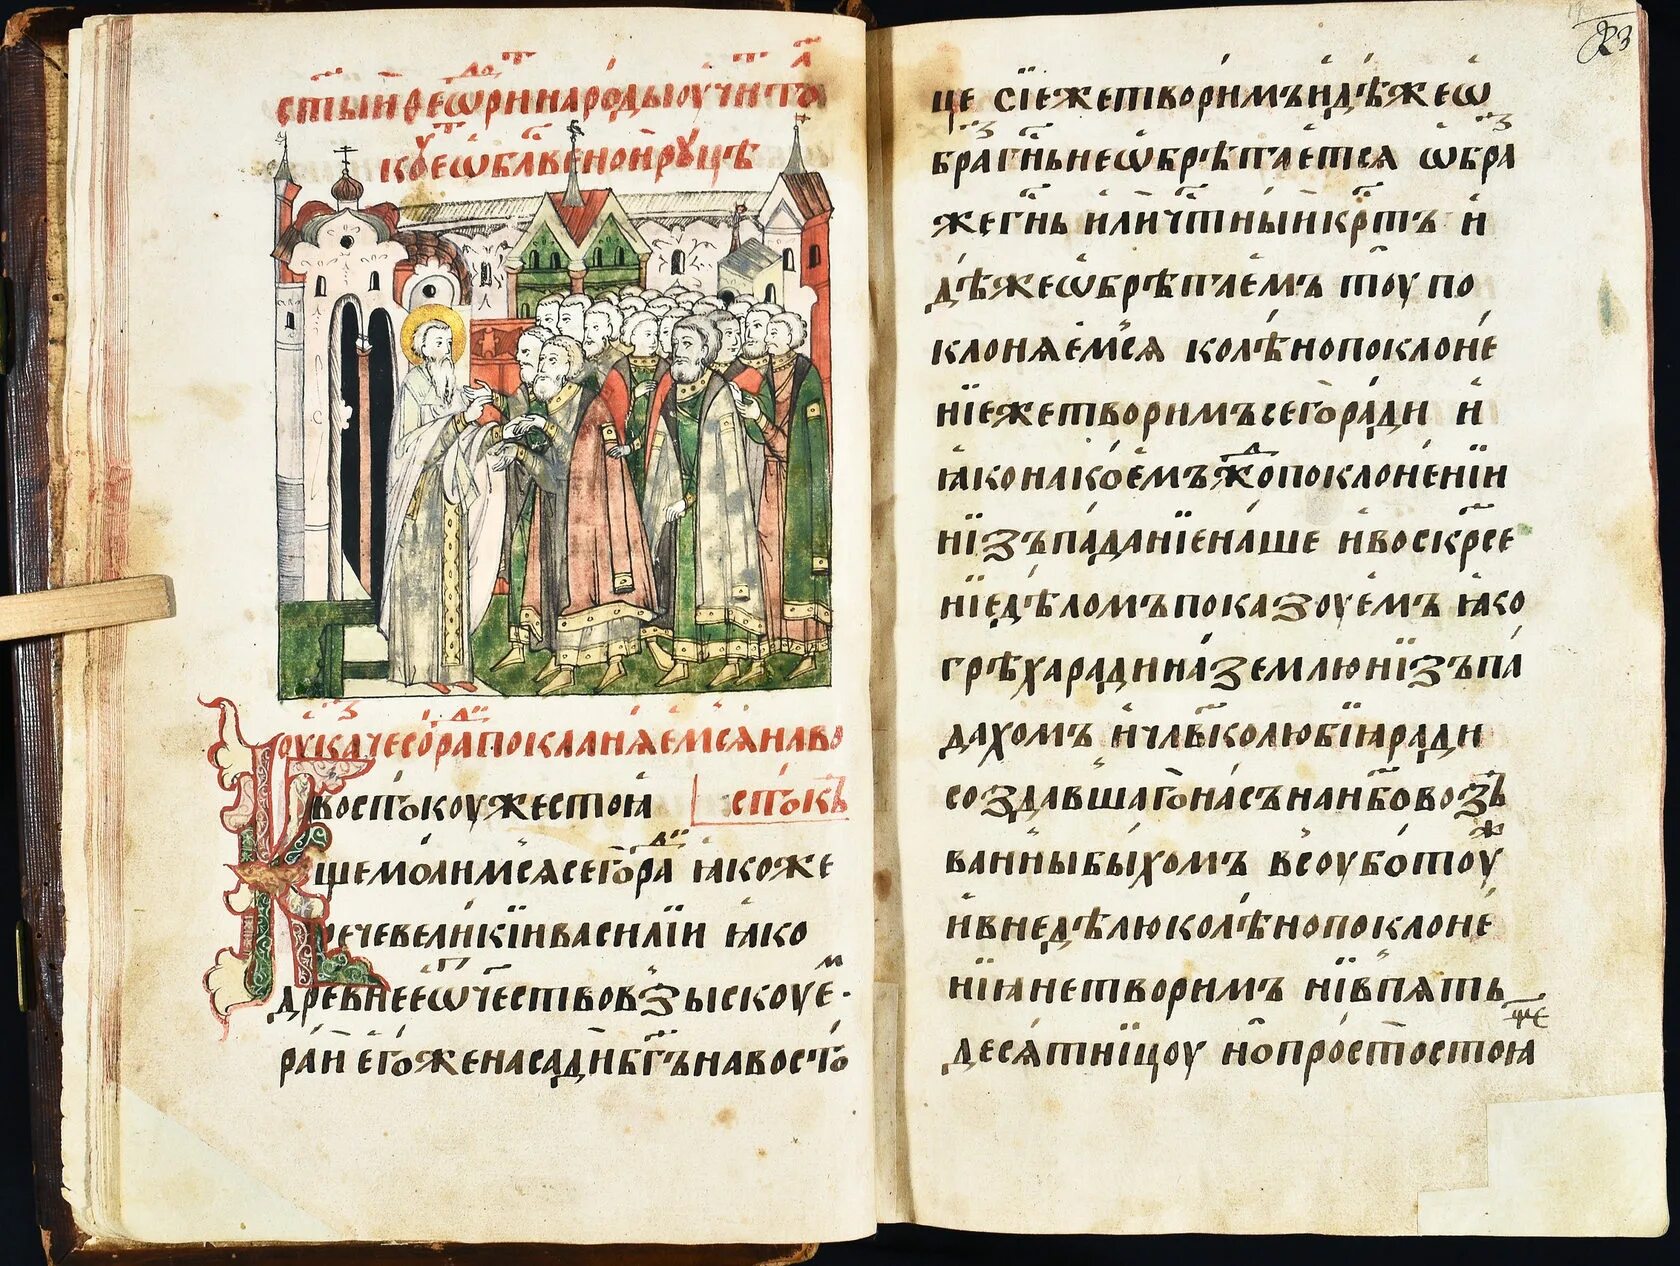 ст҃ы́йѳеѡ҆ринаро́дыоучи́тъ
ко́еѡбл҃ве́нойруцѣ̀
оукачесо̀рад́ипокланя́емсянаво
востокоу́жестоѧ̀ сто́къ
ще мо́лимсясего̀ра́ди ꙗ҆коже
рече вели́кїйваси́лїи ꙗ҆́ко
дре́внееѡ҆те́чествовзыскоуе́м
рай его́женасадѝбг҃ънавосто́
це сїе́жетвори́мъи҆дѣ́жеѡ
бразгнь неѡбрѣта́етсѧ ѡбра
же гнь и҆личтны́йкртъ и҆
дѣ́жеѡбрѣта́емъ тоу по
клонѧ́емсѧ колѣ́нопоклоне́
нїежетвори́мъсегора́ди и҆
ꙗ҆конако́емъждопоклоне́нїи
ни́зъпа́данїена́ше и҆воскрсе
нїедѣ́ломъпока́зоуемъ ꙗ҆́ко
грѣха́радина́землюни́зъпа
да́хомъ и҆члвколю́бїѧра́ди
созда́вшагона́съна́нбово́зъ
ва́нныбы́хомъ всоубо́тоуж
и҆внедѣ́люколѣ́нопоклоне́
нїѧнетвори́мъ ни́впѧть
десѧ́тнїцоу но́про́стостоѧ́ще